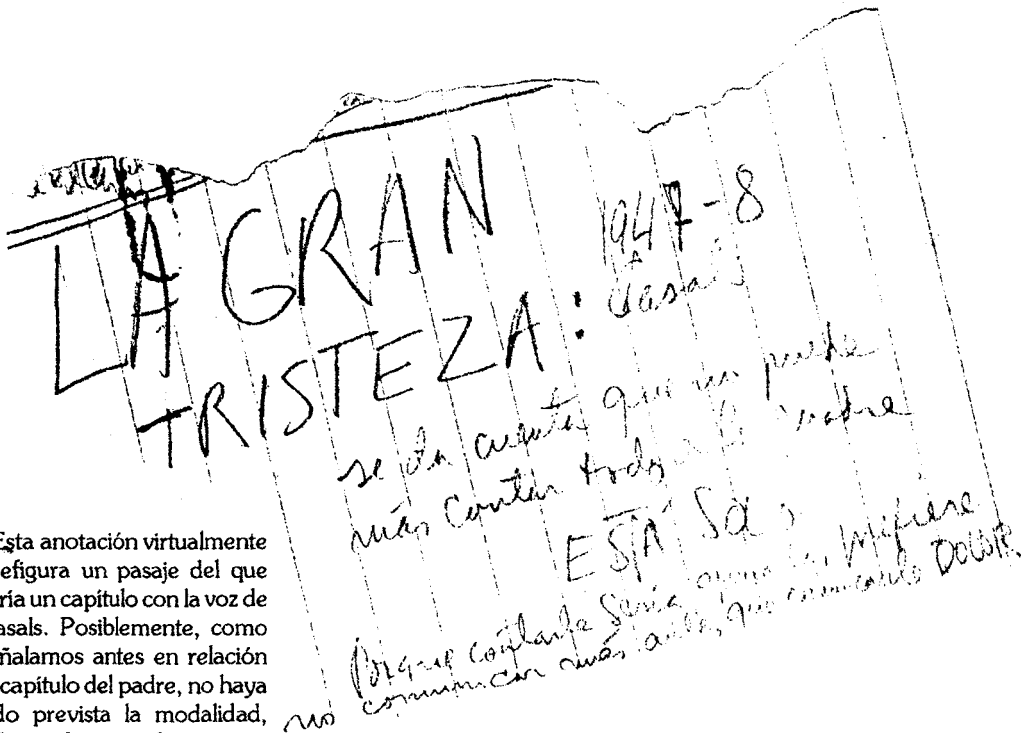 LA GRAN
TRISTEZA:
1947-8
Casals
se da cuenta que no puede
más contar todo a la madre
ESTÁ SOLO
Porque contarle sería apenarla, prefiere
no comunicar más nada, que comunicarle DOLOR.
Esta anotación virtualmente
efigura un pasaje del que
ría un capítulo con la voz de
asals. Posiblemente, como
ñalamos antes en relación
capítulo del padre, no haya
do prevista la modalidad,